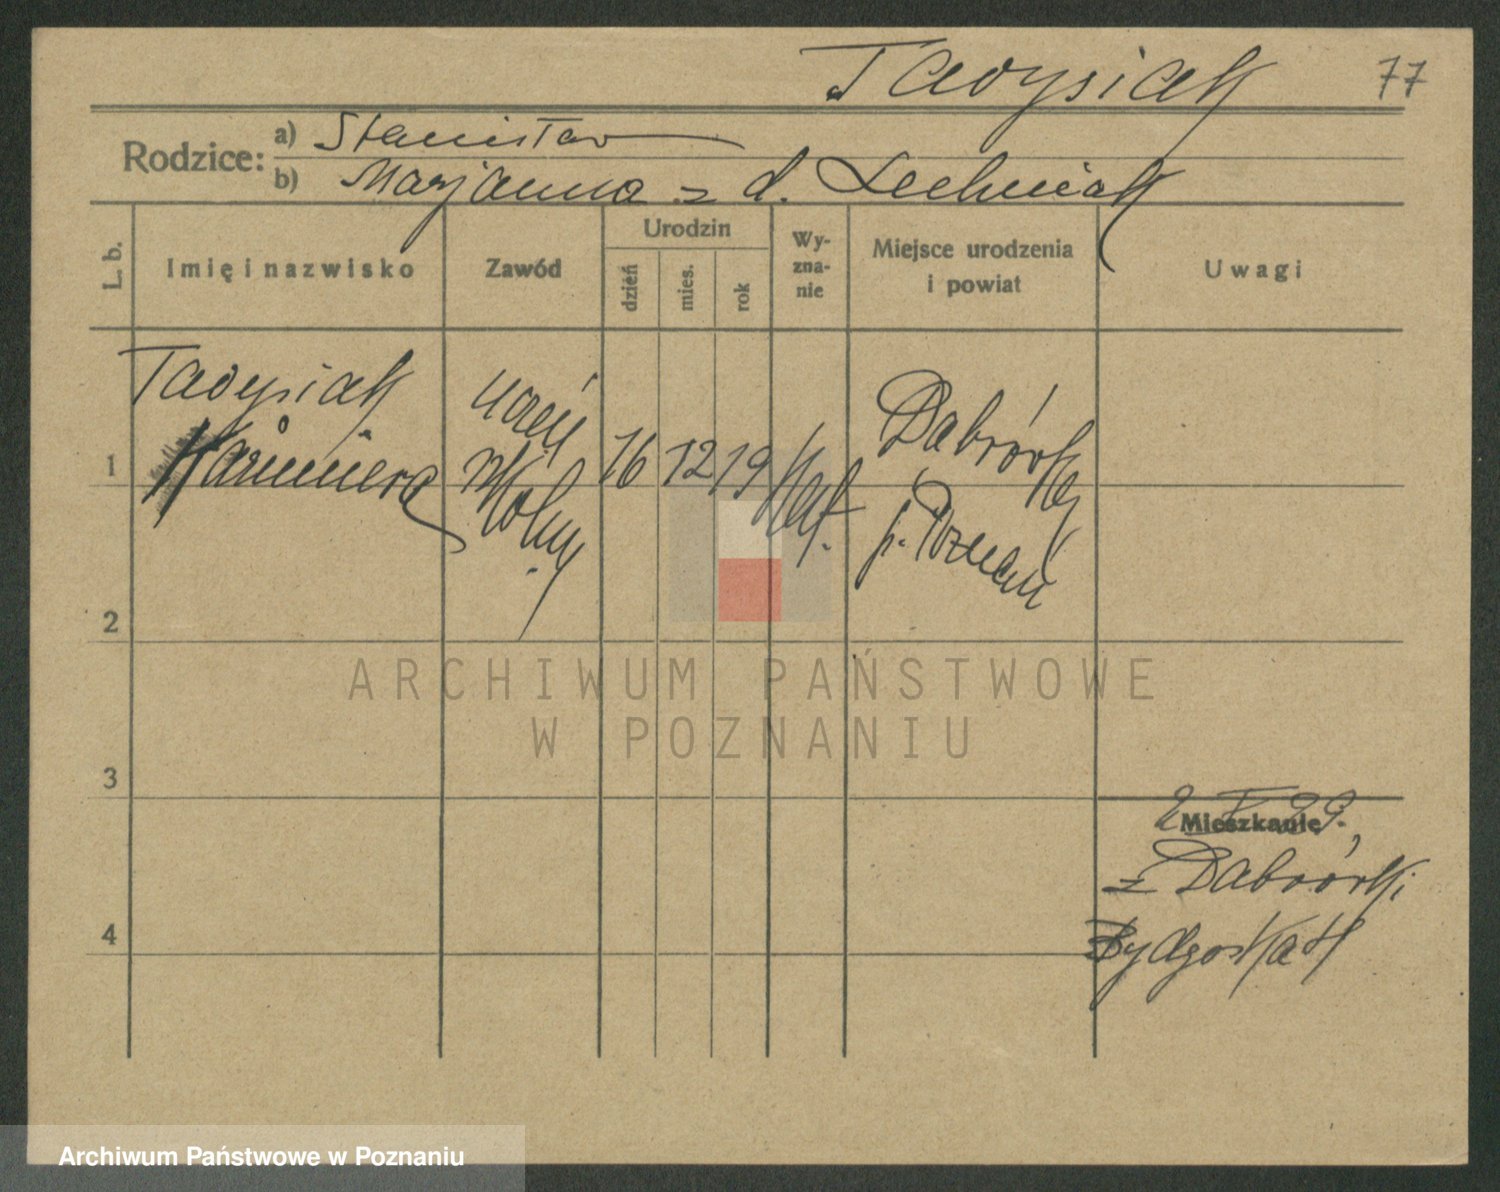 Tadysiak 77
Rodzice: a) Stanisław
b) Marjanna z d. Lechniak
L. b. Imię i nazwisko Zawód Urodzin dzień mies. rok Wy-zna-nie Miejsce urodzenia i powiat Uwagi
1 Tadysiak uczeń Dabrówka
Kazimierz szkolny 16 12 19 kat. p. Poznań
2
3
Mieszkanie
z Dabrówki
4 Bydgoska 4
ARCHIWUM PAŃSTWOWE
W POZNANIU
Archiwum Państwowe w Poznaniu